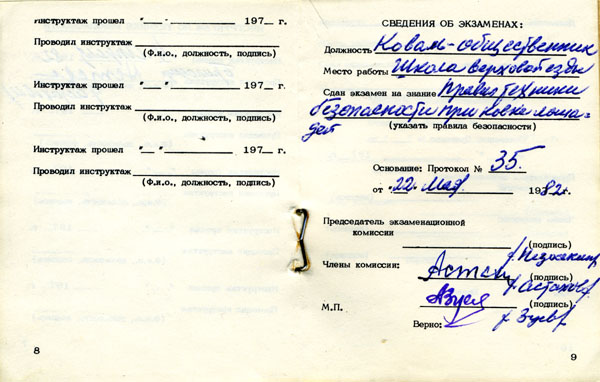 Инструктаж прошел "__" ______ 197__ г.
Проводил инструктаж
(Ф.и.о., должность, подпись)
Инструктаж прошел "__" ______ 197__ г.
Проводил инструктаж
(Ф.и.о., должность, подпись)
Инструктаж прошел "__" ______ 197__ г.
Проводил инструктаж
(Ф.и.о., должность, подпись)
8
СВЕДЕНИЯ ОБ ЭКЗАМЕНАХ:
Должность Коваль-общественник
Место работы Школа верховой езды
Сдан экзамен на знание Правил техники
безопасности при ковке лоша-
дей
(указать правила безопасности)
Основание: Протокол № 35.
от "22" Мая 1982 г.
Председатель экзаменационной
комиссии
(подпись)
Члены комиссии:
(подпись)
/Астахов/
(подпись)
М.П.
Верно: /Зуев/
9